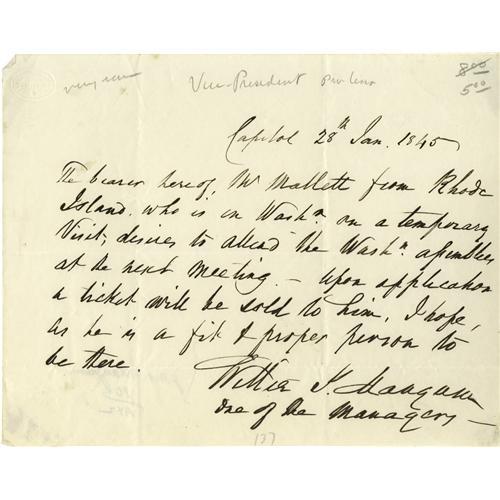 Vice-President pro tem
8 00
5 00
Capitol 28th Jan. 1845
The bearer hereof, Mr Mallett from Rhode
Island, who is in Washn on a temporary
Visit, desires to attend the Washn assemblies
at the next meeting. — upon application
a ticket will be sold to him, I hope,
as he is a fit & proper person to
be there.
Willie P. Mangum
one of the managers —
137